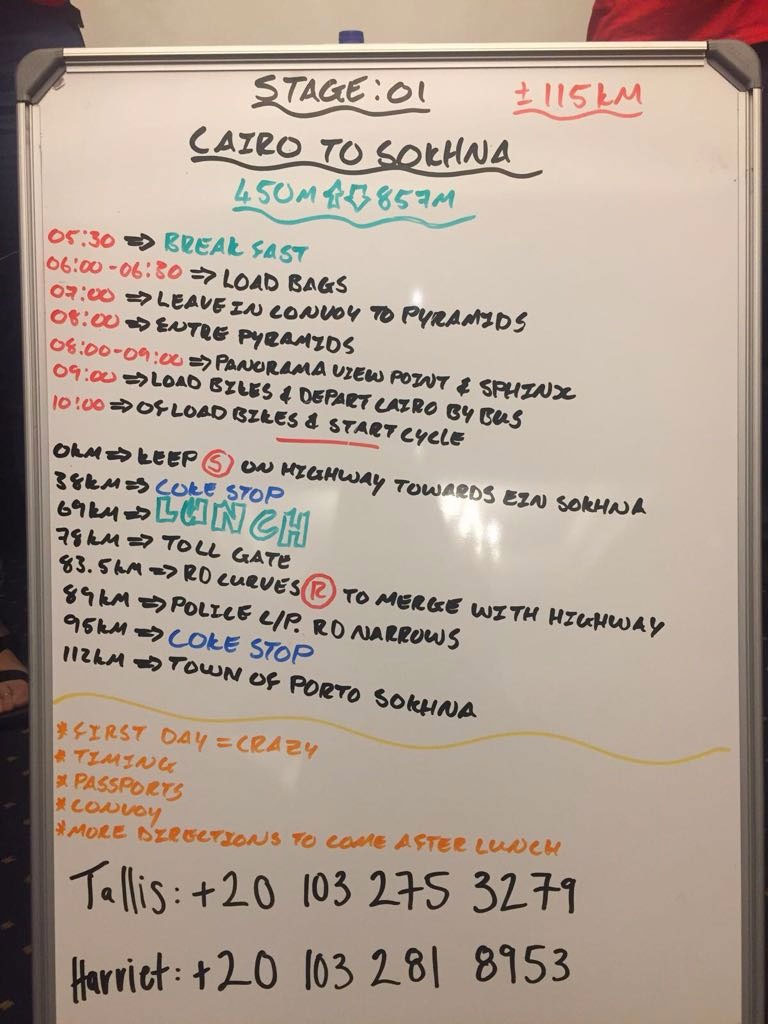 STAGE:01 ±115KM
CAIRO TO SOKHNA
450M⇧⇩857M
05:30 ⇒ BREAKFAST
06:00-06:30 ⇒ LOAD BAGS
07:00 ⇒ LEAVE IN CONVOY TO PYRAMIDS
08:00 ⇒ ENTRE PYRAMIDS
08:00-09:00 ⇒ PANORAMA VIEW POINT & SPHINX
09:00 ⇒ LOAD BIKES & DEPART CAIRO BY BUS
10:00 ⇒ OFLOAD BIKES & START CYCLE
0KM ⇒ KEEP Ⓢ ON HIGHWAY TOWARDS EIN SOKHNA
38KM ⇒ COKE STOP
69KM ⇒ LUNCH
78KM ⇒ TOLL GATE
83.5KM ⇒ RD CURVES Ⓡ TO MERGE WITH HIGHWAY
89KM ⇒ POLICE C/P. RD NARROWS
95KM ⇒ COKE STOP
112KM ⇒ TOWN OF PORTO SOKHNA
*FIRST DAY = CRAZY
*TIMING
*PASSPORTS
*CONVOY
*MORE DIRECTIONS TO COME AFTER LUNCH
Tallis: +20 103 275 3279
Harriet: +20 103 281 8953